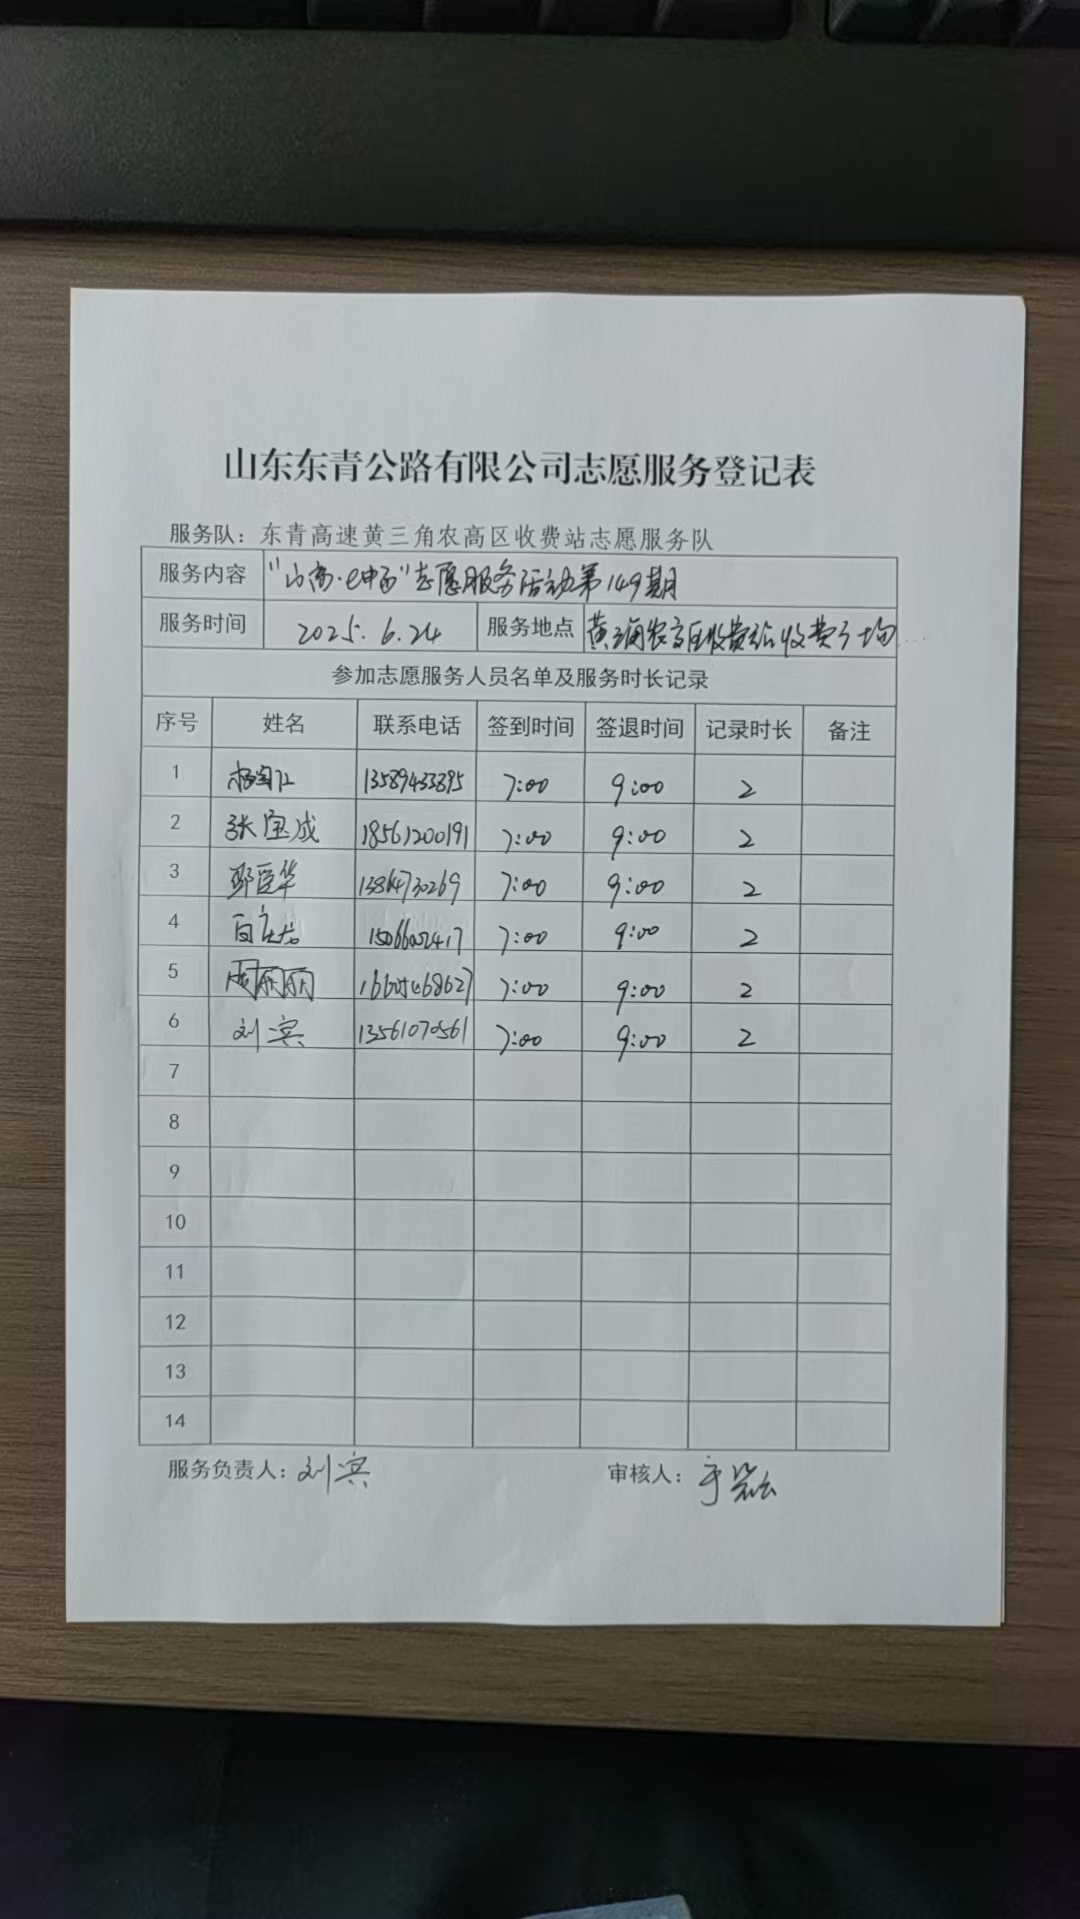 山东东青公路有限公司志愿服务登记表
服务队：东青高速黄三角农高区收费站志愿服务队
服务内容 "山高·e中国"志愿服务活动第149期
服务时间 2025.6.24 服务地点 黄三角农高区收费站收费广场
参加志愿服务人员名单及服务时长记录
序号 姓名 联系电话 签到时间 签退时间 记录时长 备注
1 13589433895 7:00 9:00 2
2 张宝成 18561200191 7:00 9:00 2
3 7:00 9:00 2
4 7:00 9:00 2
5 周丽丽 16605468627 7:00 9:00 2
6 刘滨 13561070561 7:00 9:00 2
7
8
9
10
11
12
13
14
服务负责人：刘滨 审核人：